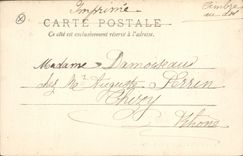 Imprimé
Timbre
au dos
CARTE POSTALE
Ce côté est exclusivement réservé à l'adresse.
Madame Damouseau
chez Mr Auguste Perrin
Thizy
Rhône